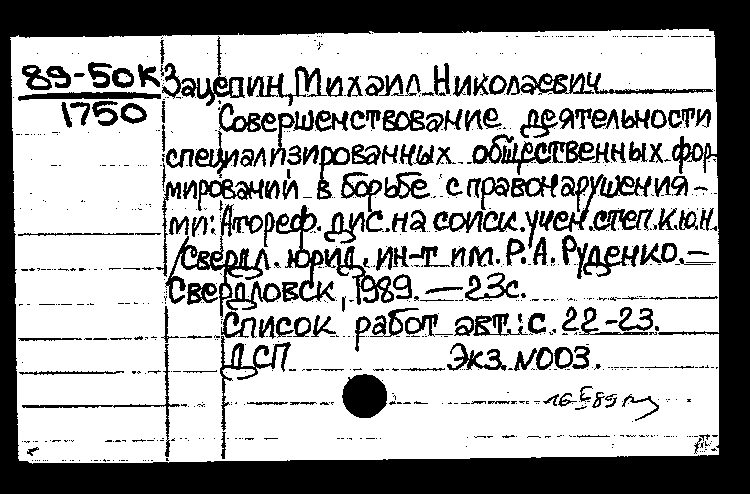 89-50к Зацепин, Михаил Николаевич
1750 Совершенствование деятельности
специализированных общественных фор-
мирований в борьбе с правонарушения-
ми: Атореф. дис. на соиск. учен. степ. к.ю.н.
/Свердл. юрид. ин-т им. Р.А. Руденко.—
Свердловск, 1989. — 23с.
Список работ авт.: с. 22-23.
ДСП Экз. N003.